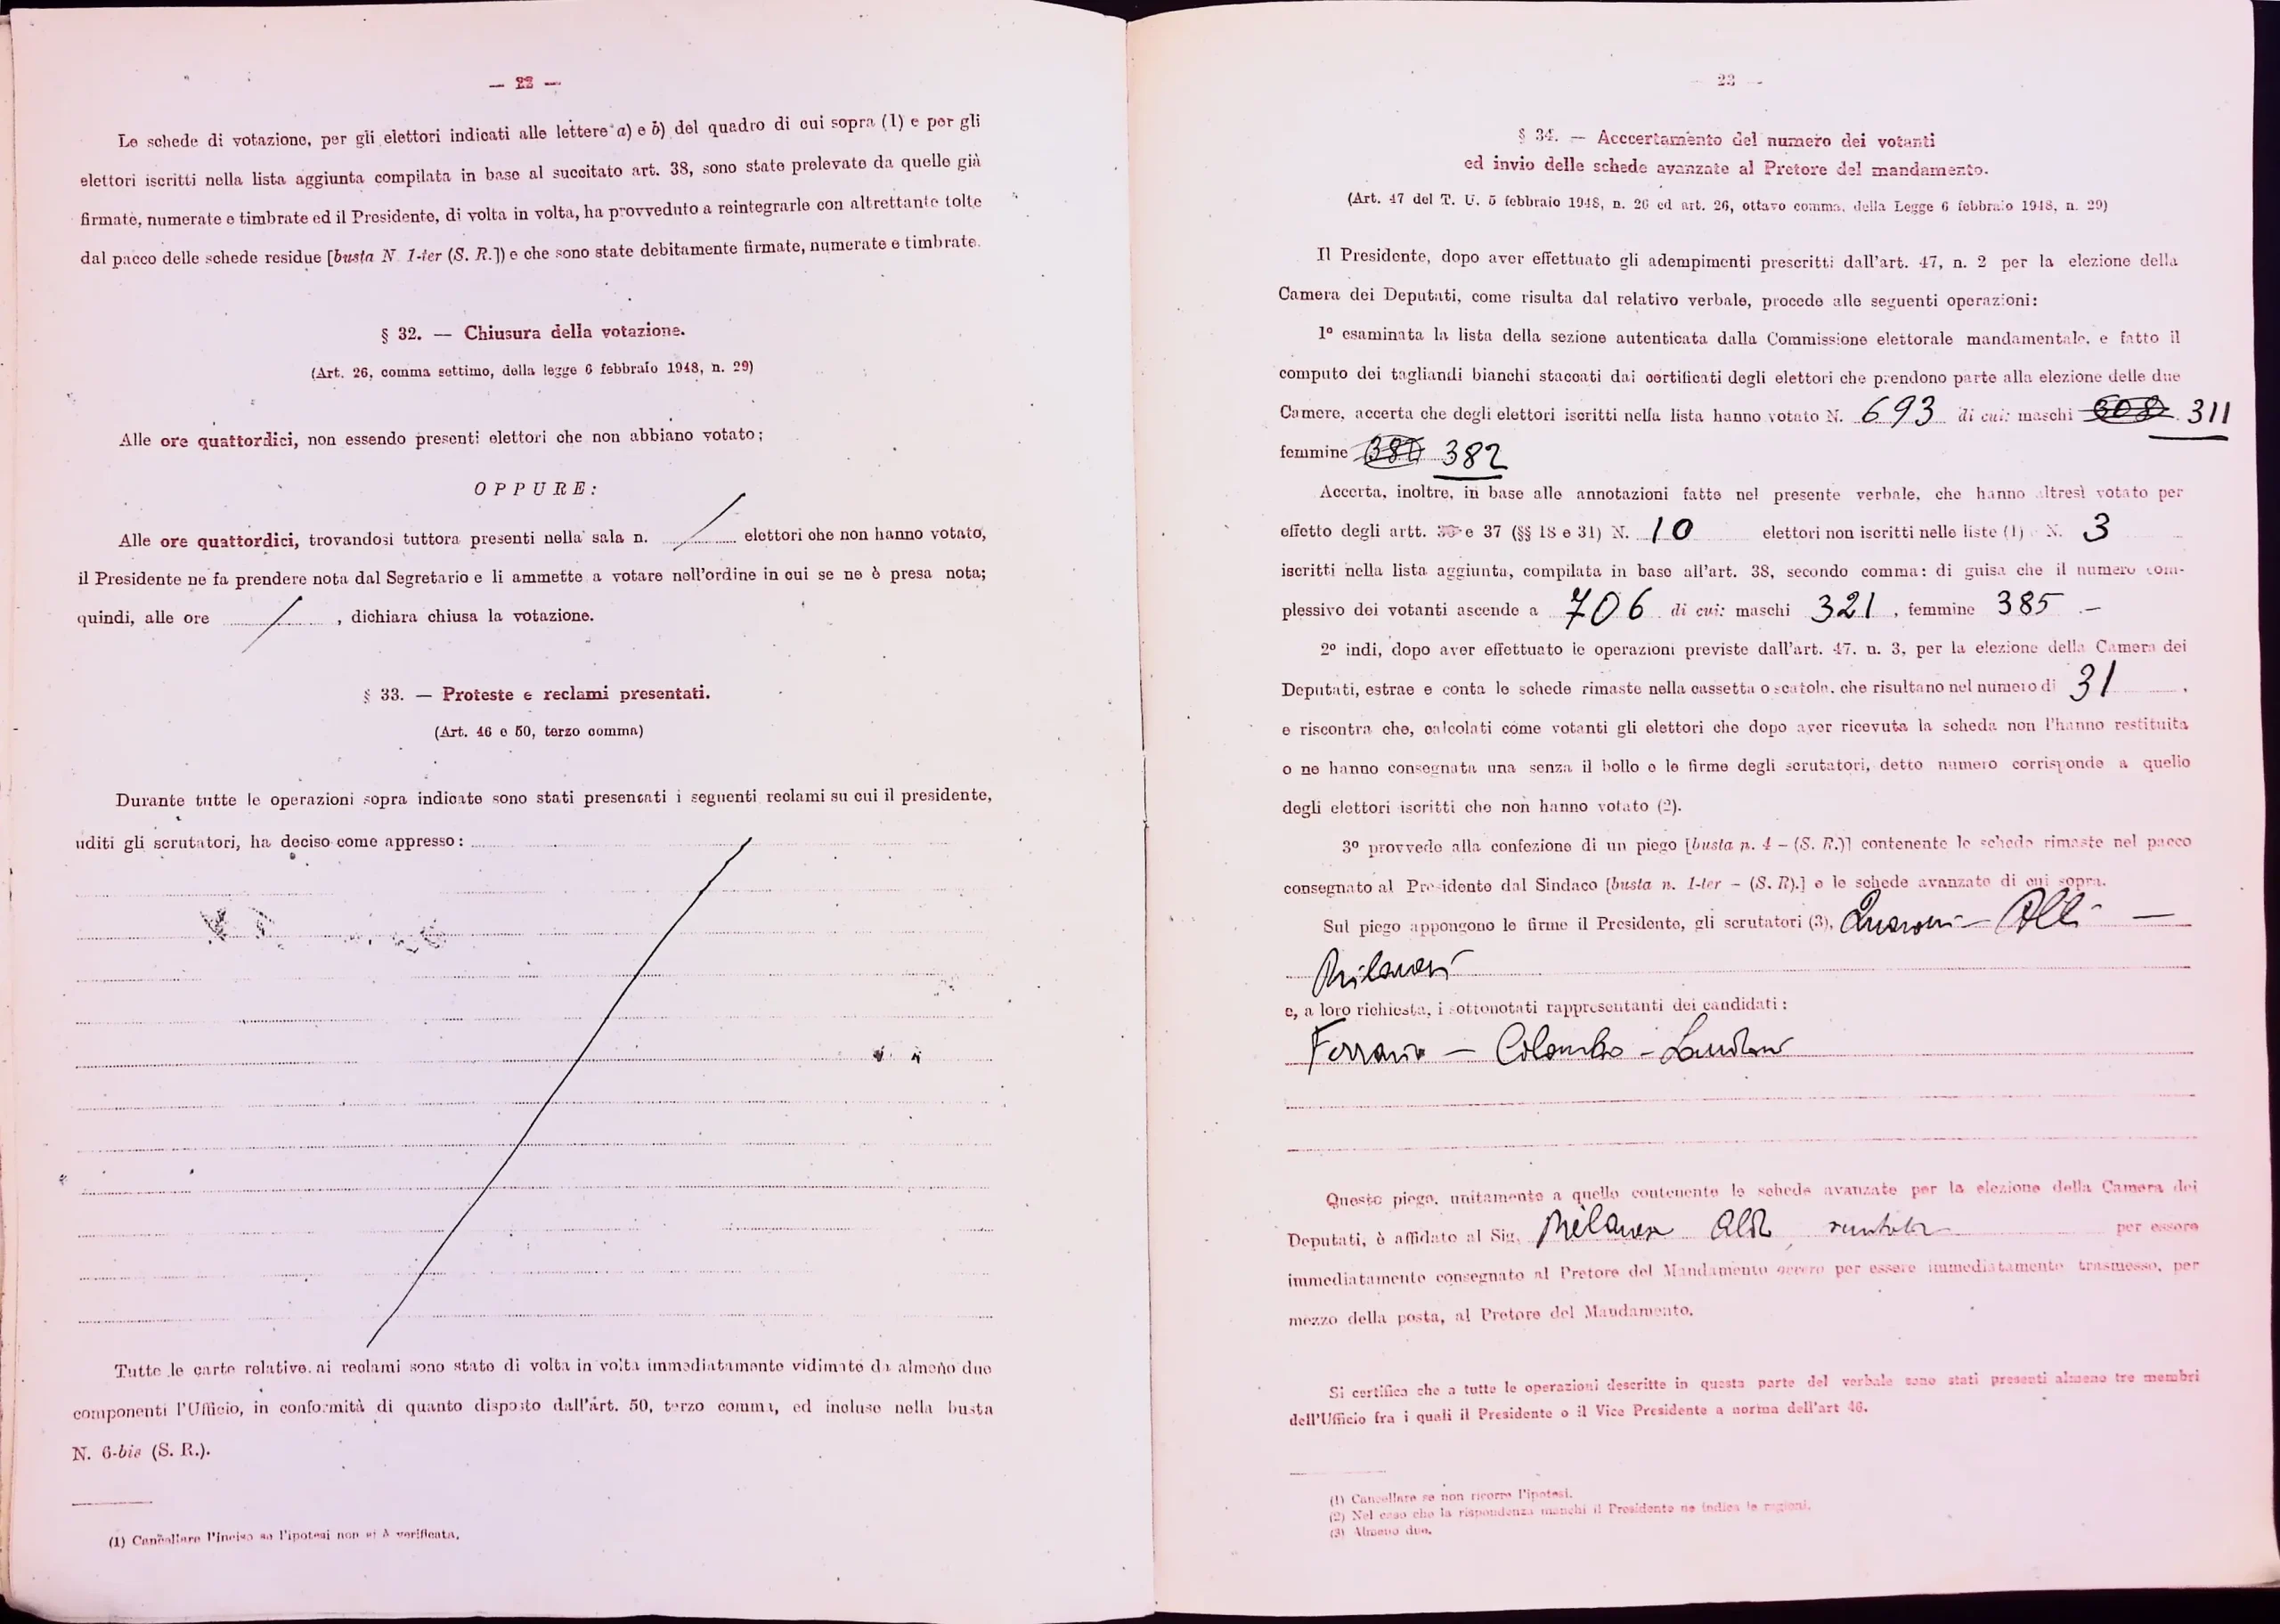 — 22 —
Le schede di votazione, per gli elettori indicati alle lettere a) e b) del quadro di cui sopra (1) e per gli
elettori iscritti nella lista aggiunta compilata in base al succitato art. 38, sono state prelevate da quelle già
firmate, numerate e timbrate ed il Presidente, di volta in volta, ha provveduto a reintegrarle con altrettante tolte
dal pacco delle schede residue [busta N. 1-ter (S. R.]) e che sono state debitamente firmate, numerate e timbrate.
§ 32. — Chiusura della votazione.
(Art. 26, comma settimo, della legge 6 febbraio 1948, n. 29)
Alle ore quattordici, non essendo presenti elettori che non abbiano votato;
OPPURE:
Alle ore quattordici, trovandosi tuttora presenti nella sala n. / elettori che non hanno votato,
il Presidente ne fa prendere nota dal Segretario e li ammette a votare nell'ordine in cui se ne è presa nota;
quindi, alle ore / , dichiara chiusa la votazione.
§ 33. — Proteste e reclami presentati.
(Art. 46 e 50, terzo comma)
Durante tutte le operazioni sopra indicate sono stati presentati i seguenti reclami su cui il presidente,
uditi gli scrutatori, ha deciso come appresso:
Tutte le carte relative ai reclami sono state di volta in volta immediatamente vidimate da almeno due
componenti l'Ufficio, in conformità di quanto disposto dall'art. 50, terzo comma, ed incluse nella busta
N. 6-bis (S. R.).
(1) Cancellare l'inciso se l'ipotesi non si è verificata.
— 23 —
§ 34. — Acccertamento del numero dei votanti
ed invio delle schede avanzate al Pretore del mandamento.
(Art. 47 del T. U. 5 febbraio 1948, n. 26 ed art. 26, ottavo comma, della Legge 6 febbraio 1948, n. 29)
Il Presidente, dopo aver effettuato gli adempimenti prescritti dall'art. 47, n. 2 per la elezione della
Camera dei Deputati, come risulta dal relativo verbale, procede alle seguenti operazioni:
1º esaminata la lista della sezione autenticata dalla Commissione elettorale mandamentale, e fatto il
computo dei tagliandi bianchi staccati dai certificati degli elettori che prendono parte alla elezione delle due
Camere, accerta che degli elettori iscritti nella lista hanno votato N. 693 di cui: maschi 308 311
femmine 382
Accerta, inoltre, in base alle annotazioni fatte nel presente verbale, che hanno altresì votato per
effetto degli artt. e 37 (§§ 18 e 31) N. 10 elettori non iscritti nelle liste (1) N. 3
iscritti nella lista aggiunta, compilata in base all'art. 38, secondo comma: di guisa che il numero com-
plessivo dei votanti ascende a 706 di cui: maschi 321, femmine 385 —
2º indi, dopo aver effettuato le operazioni previste dall'art. 47, n. 3, per la elezione della Camera dei
Deputati, estrae e conta le schede rimaste nella cassetta o scatola, che risultano nel numero di 31 ,
e riscontra che, calcolati come votanti gli elettori che dopo aver ricevuta la scheda non l'hanno restituita
o ne hanno consegnata una senza il bollo o le firme degli scrutatori, detto numero corrisponde a quello
degli elettori iscritti che non hanno votato (2).
3º provvede alla confezione di un piego [busta n. 4 – (S. R.)] contenente le schede rimaste nel pacco
consegnato al Presidente dal Sindaco [busta n. 1-ter – (S. R).] e le schede avanzate di cui sopra.
Sul piego appongono le firme il Presidente, gli scrutatori (3),
Milanesi
e, a loro richiesta, i sottonotati rappresentanti dei candidati:
Ferrario — Colombo –
Questo piego, unitamente a quello contenente le schede avanzate per la elezione della Camera dei
Deputati, è affidato al Sig. Milanesi Aldo per essere
immediatamente consegnato al Pretore del Mandamento ovvero per essere immediatamente trasmesso, per
mezzo della posta, al Pretore del Mandamento.
Si certifica che a tutte le operazioni descritte in questa parte del verbale sono stati presenti almeno tre membri
dell'Ufficio fra i quali il Presidente o il Vice Presidente a norma dell'art 46.
(1) Cancellare se non ricorre l'ipotesi.
(2) Nel caso che la rispondenza manchi il Presidente ne indica le ragioni.
(3) Almeno due.